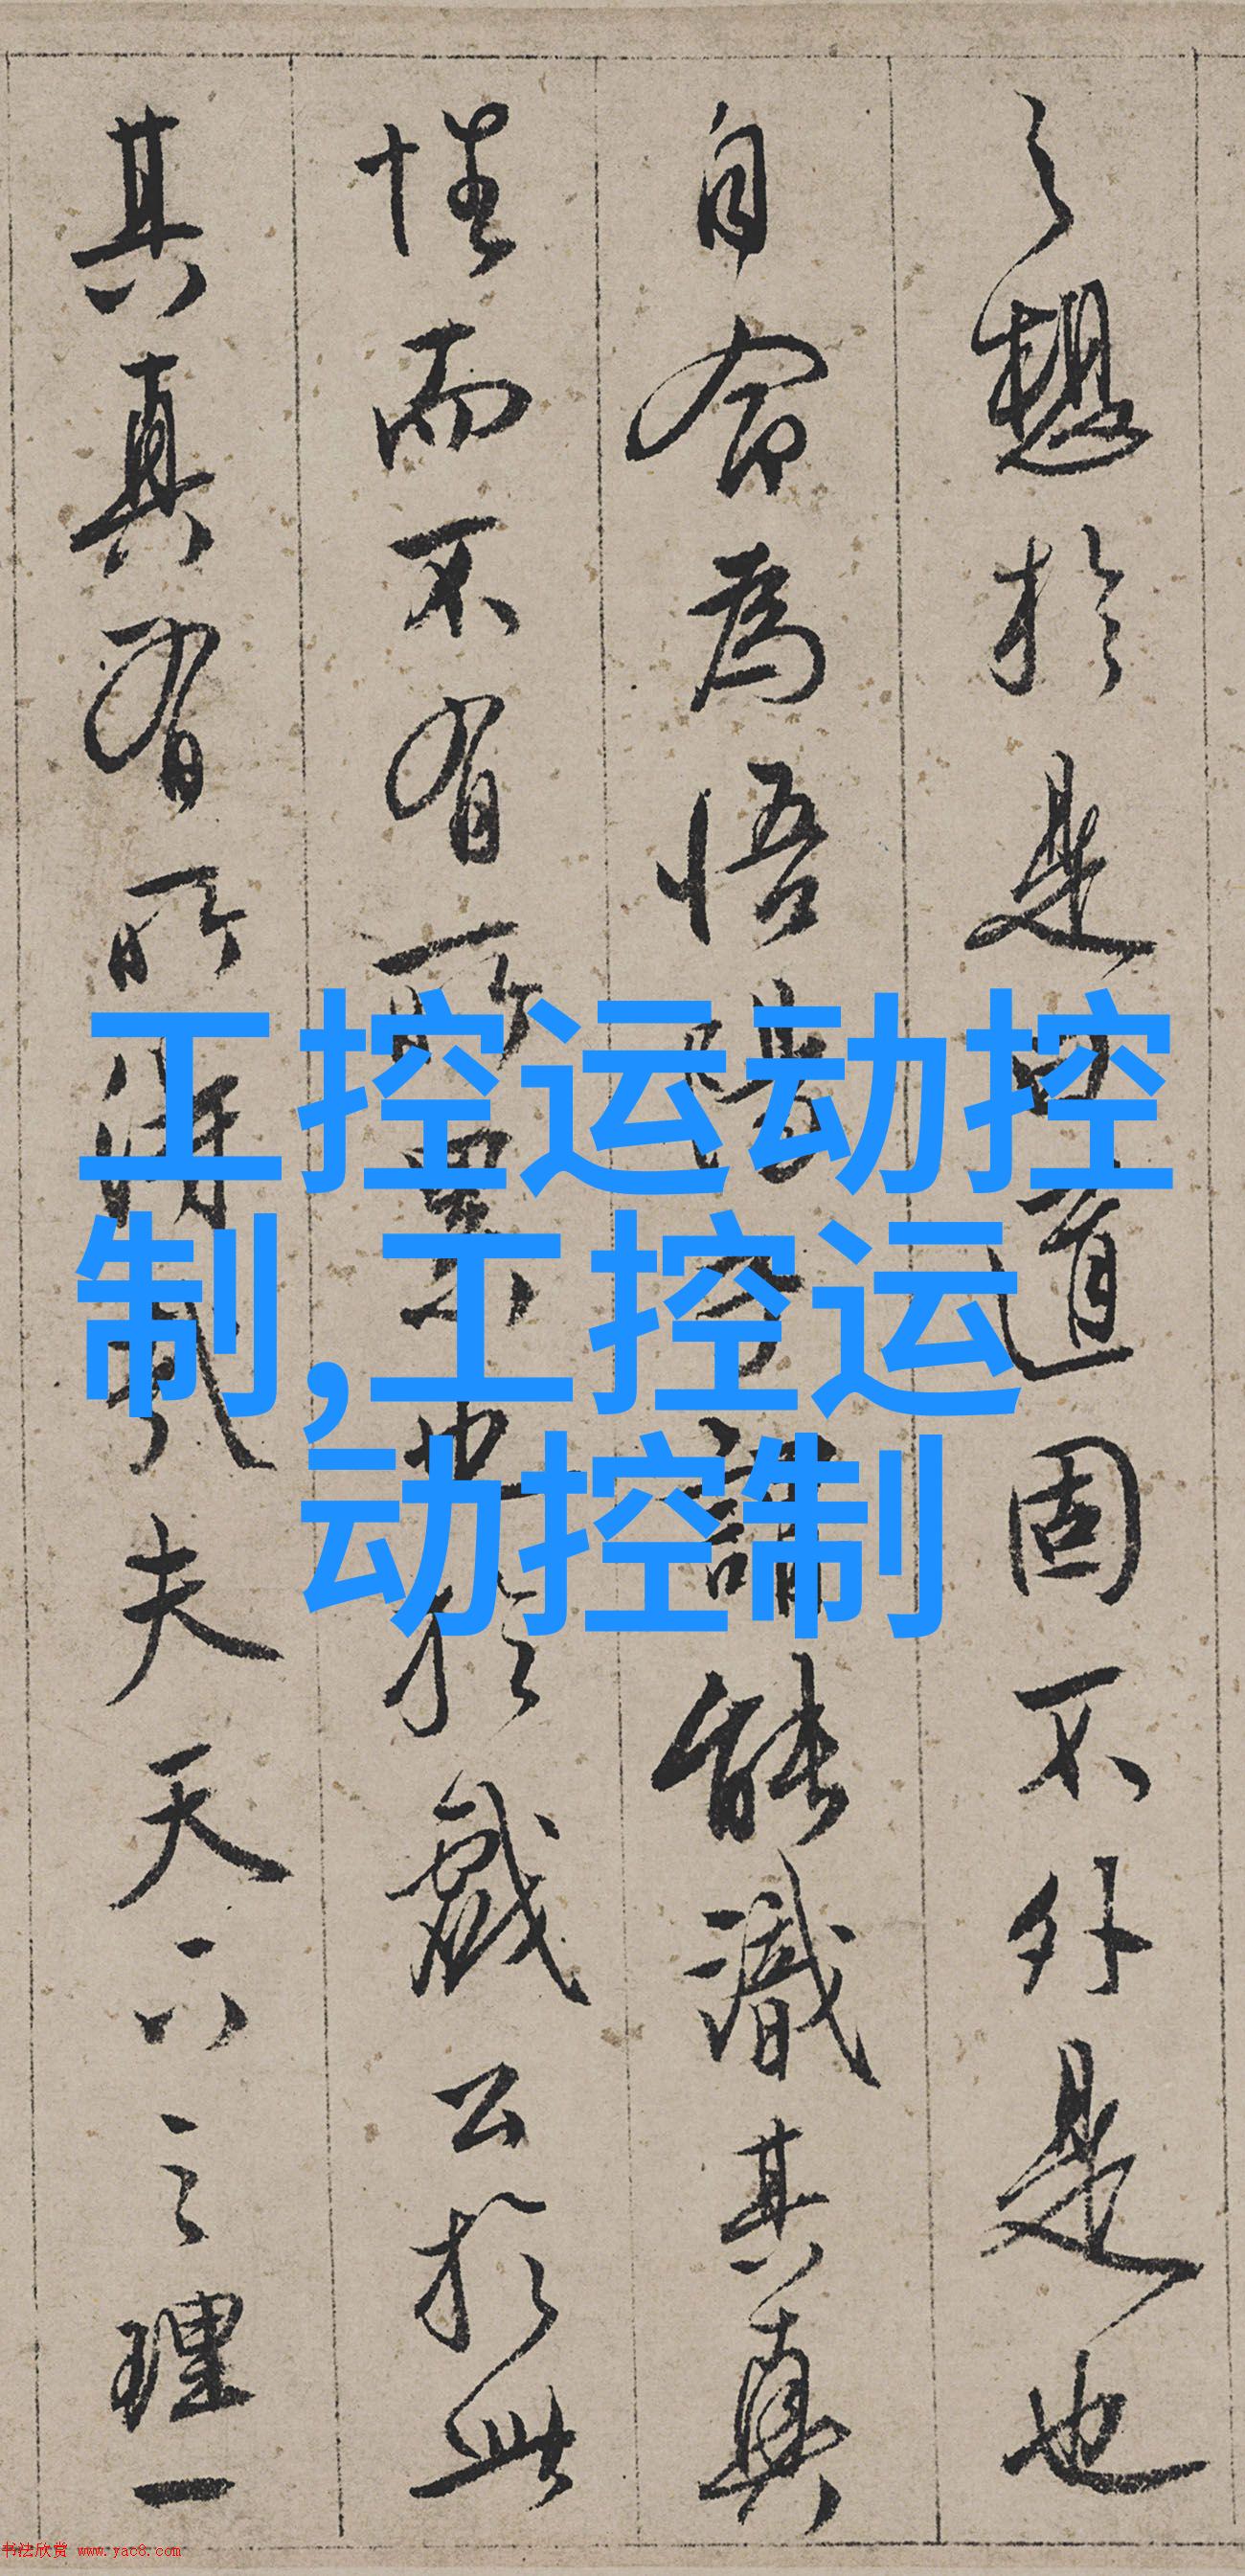 之想於是
道固不外是也
自命為悟
謂能識其真
性而不有所
累
也於戲公於此
其真有所得哉夫天下之理一
工控运动控
制,工控运
动控制
书法欣赏 www.yac8.com